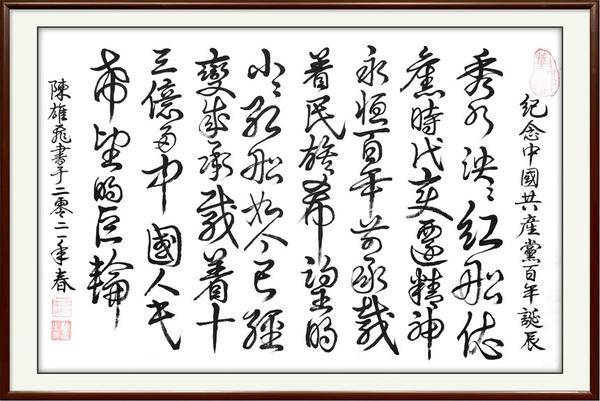 紀念中國共產黨百年誕辰
秀水泱泱紅船依
舊時代變遷精神
永恒百年前承載
着民族希望的
小小紅船如今已經
變成承載着十
三億多中國人民
希望的巨輪
陳雄飛書于二零二一年春